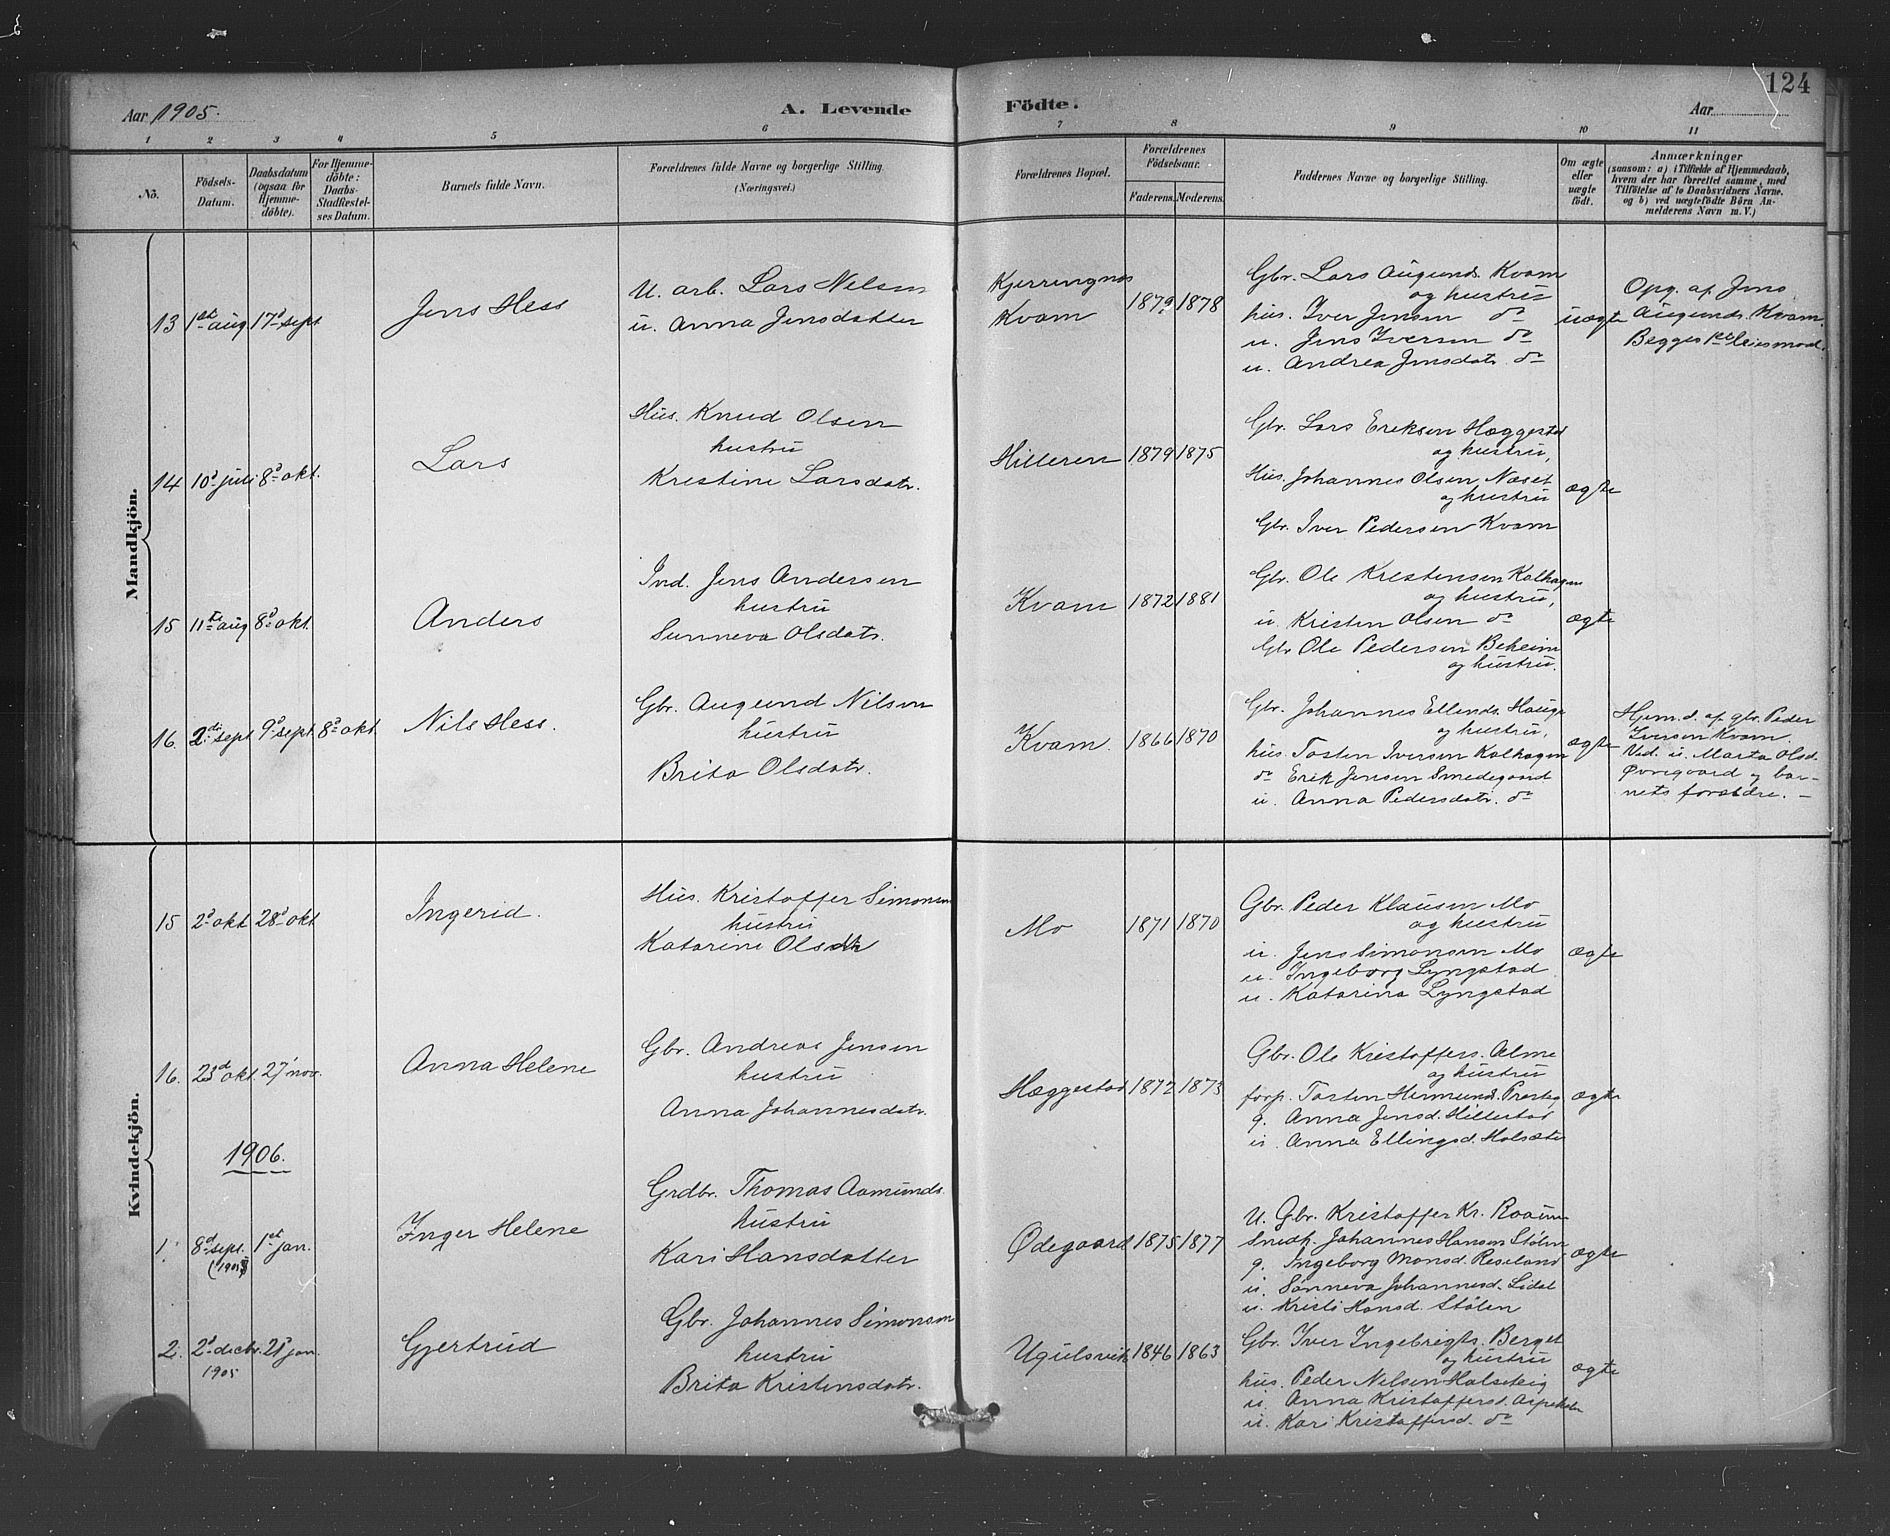 124
Aar 1905. A. Levende Födte. Aar
1 2 3 4 5 6 7 8 9 10 11
Nö.
Födsels-Datum.
Daabsdatum (ogsaa for Hjemme-döbte).
For Hjemme-döbte: Daabs-Stadfæstel-ses Datum.
Barnets fulde Navn.
Forældrenes fulde Navne og borgerlige Stilling. (Næringsvei.)
Forældrenes Bopæl.
Forældrenes Födselsaar.
Faderens. Moderens.
Faddernes Navne og borgerlige Stilling.
Om ægte eller uægte födt.
Anmærkninger
(saasom: a) i Tilfælde af Hjemmedaab,
hvem der har forrettet samme, med
Tilföielse af to Daabsvidners Navne.
og b) ved uægtefödte Börn An-
melderens Navn m.V.)
Mandkjön.
13 1st aug 17d sept Jens Hess
U. arb. Lars Nelsen
u. Anna Jensdatter
Kjerringnes
Kvam
1879 1878
Gbr. Lars Augunds. Kvam
og hustru
hus. Iver Jensen do
u. Jens Iversen do
u. Andrea Jensdatr. do
uægte
Opg. af Jens
Augunds. Kvam.
Begges 1ste leiermaal.
14 10d juli 8d okt. Lars
Hus. Knud Olsen
hustru
Krestine Larsdatr.
Hilleren 1879 1875
Gbr. Lars Eriksen Hæggestad
og hustru,
Hus. Johannes Olsen Næset
og hustru
Gbr. Iver Pedersen Kvam
ægte
15 11te aug 8d okt. Anders
Ind. Jens Andersen
hustru
Sunneva Olsdatr.
Kvam 1872 1881
Gbr. Ole Krestensen Kalhagen
og hustru,
u. Kristen Olsen do
Gbr Ole Pedersen Beheim
og hustru.
ægte
16. 2di sept 9d sept 8d okt. Nils Hess.
Gbr. Augund Nilsen
hustru
Brita Olsdatr.
Kvam. 1866 1870
Gbr. Johannes Ellends. Hauge
og hustru,
hus. Tosten Iversen Kalhagen
do Erik Jensen Smedegaard
u. Anna Pedersdatr. do
ægte
Hjem.d. af gbr. Peder
Iversen Kvam.
Ved. u. Marta Olsd.
Øvregaard og bar-
nets forældre. –
Kvindekjön.
15 2d okt 28d okt Ingerid.
Hus. Kristoffer Simonsen
hustru
Katarine Olsdtr
Mo 1871 1870
Gbr. Peder Klausen Mo
og hustru
u. Jens Simonsen Mo
u. Ingeborg Lyngstad
u. Katarina Lyngstad
ægte
16. 23d okt. 27' nov. Anna Helene
Gbr. Andreas Jensen
hustru
Anna Johannesdatr.
Hæggestad 1872 1873
Gbr. Ole Kristoffers. Alme
og hustru
forp. Tosten Hermunds. Presteg
g. Anna Jensd. Hillestad
u. Anna Ellingsd. Holsæte
ægte
1906.
1. 8d sept. (1905) 1st jan. Inger Helene
Grdbr. Thomas Aamunds.
hustru
Kari Hansdatter
Ødegaard 1875 1877
U. Gbr. Kristoffer Kr. Raaum
Snedk. Johannes Hansen Stølen
g. Ingeborg Monsd. Reseland
u. Sønneva Johannesd. Lidal
u. Kristi Hansd. Stølen
ægte
2. 2d decbr. 1905 21d jan. Gjertrud
Gbr. Johannes Simonsen
hustru
Brita Kristensdatr.
Ugulsvik 1846 1863
Gbr. Iver Ingebrigts. Berget
og hustru
hus. Peder Nelsen Halsteig
u. Anna Kristoffersd.
u. Kari Kristoffersd. do
ægte